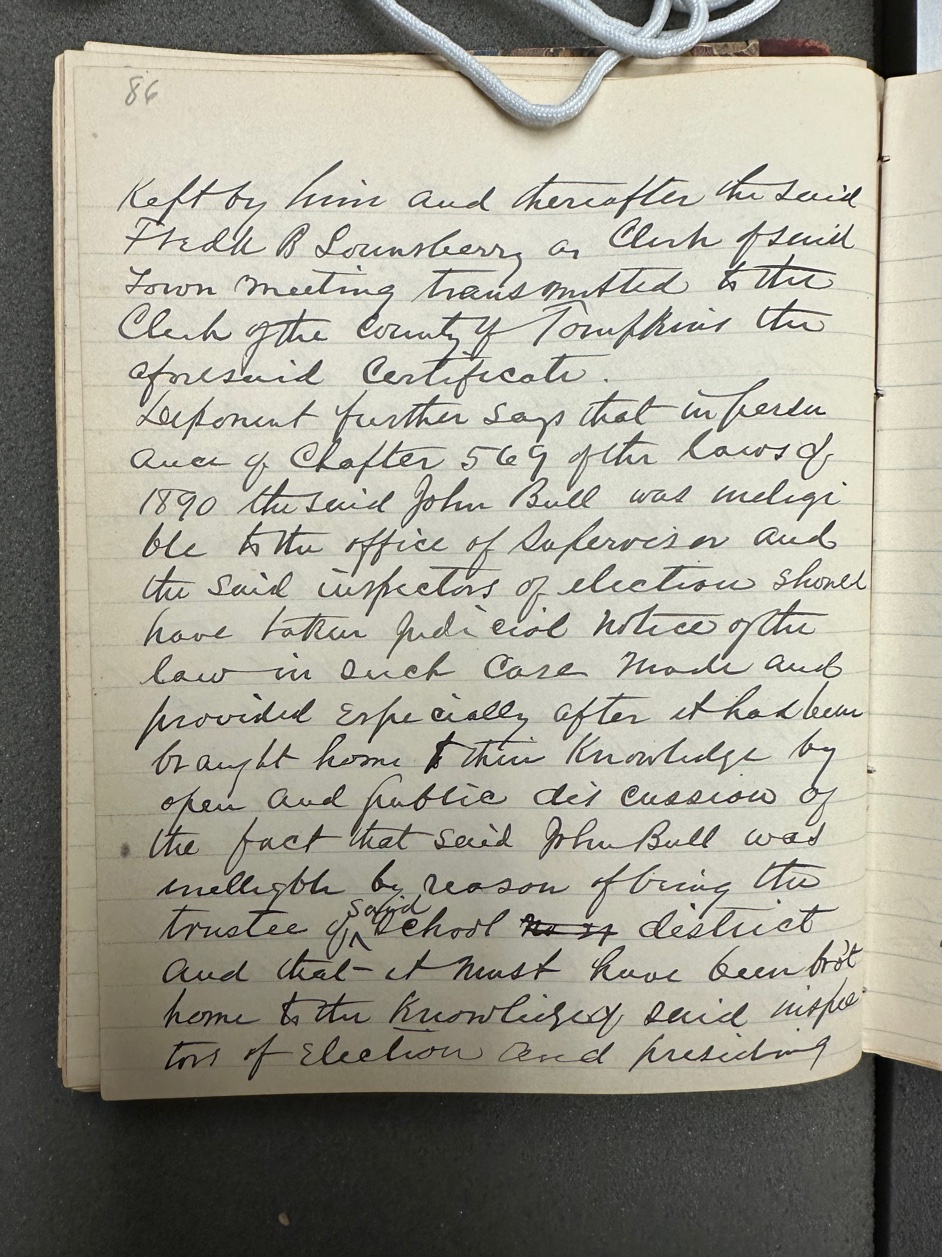 86
Kept by him and thereafter the said
Fredk B Lounsberry as Clerk of said
Town meeting transmitted to the
Clerk of the County of Tompkins the
aforesaid Certificate.
Deponent further says that in persu
ance of Chapter 569 of the laws of
1890 the said John Bull was ineligi
ble to the office of Supervisor and
the said inspectors of election should
have taken judicial notice of the
law in such case made and
provided Especially after it had been
braught home to their Knowledge by
open and public discussion of
the fact that said John Bull was
inelligble by reason of being the
trustee of said School district
and that it must have been bro't
home to the Knowledge of said inspec
tors of Election and presiding